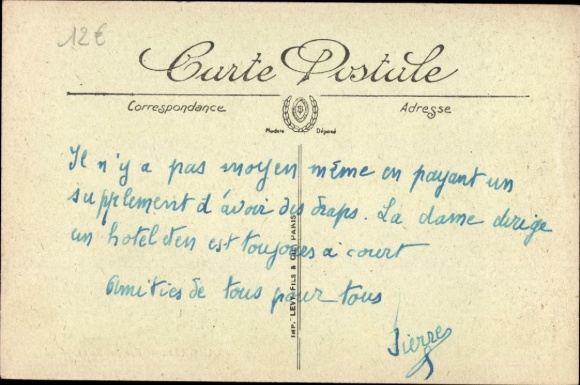 12€
Carte Postale
Correspondance
Adresse
Modèle Déposé
Il n'y a pas moyen même en payant un
supplement d'avoir des draps. La dame dirige
un hotel et en est toujours à court
Amitiés de tous pour tous
Pierre
IMP. LEVY FILS & CIE PARIS